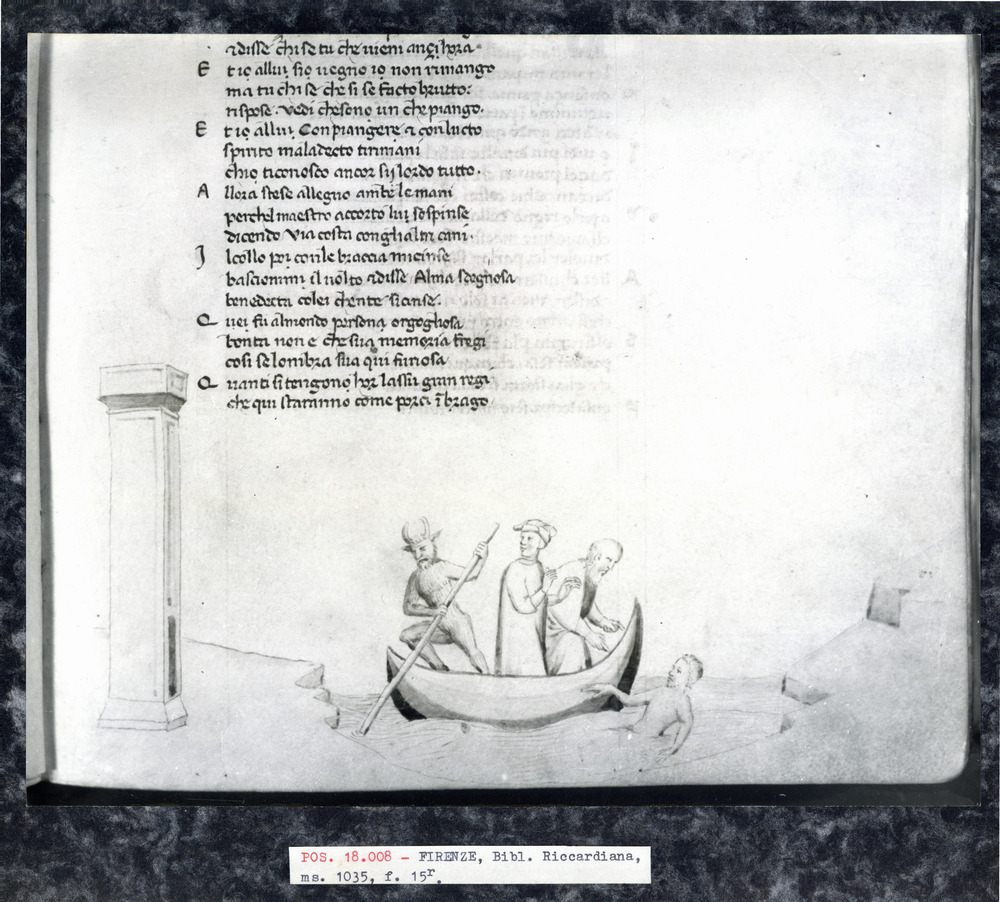 ⁊ disse chi se tu che vieni anzi hora
E t io allui sio vegno io non rimango
ma tu chi se che si se facto brutto:
rispose. vedi che sono un che piango.
E t io allui. Con piangere ⁊ con lucto
spirito maladecto ti rimani
chio ti conosco ancor sij lordo tutto.
A llora stese allegno ambe le mani
perchel maestro accorto lui sospinse
dicendo via costa con glialtri cani.
I lcollo poi con le braccia mi cinse
basciommi il volto ⁊ disse Alma sdegnosa
benedecta colei chente sicinse.
Q uei fu almondo persona orgogliosa
bonta non e che sua memoria fregi
cosi se lombra sua qui furiosa
Q uanti si tengono hor lassu gran regi
che qui staranno come porci ī brago.
POS. 18.008 – FIRENZE, Bibl. Riccardiana,
ms. 1035, f. 15r.